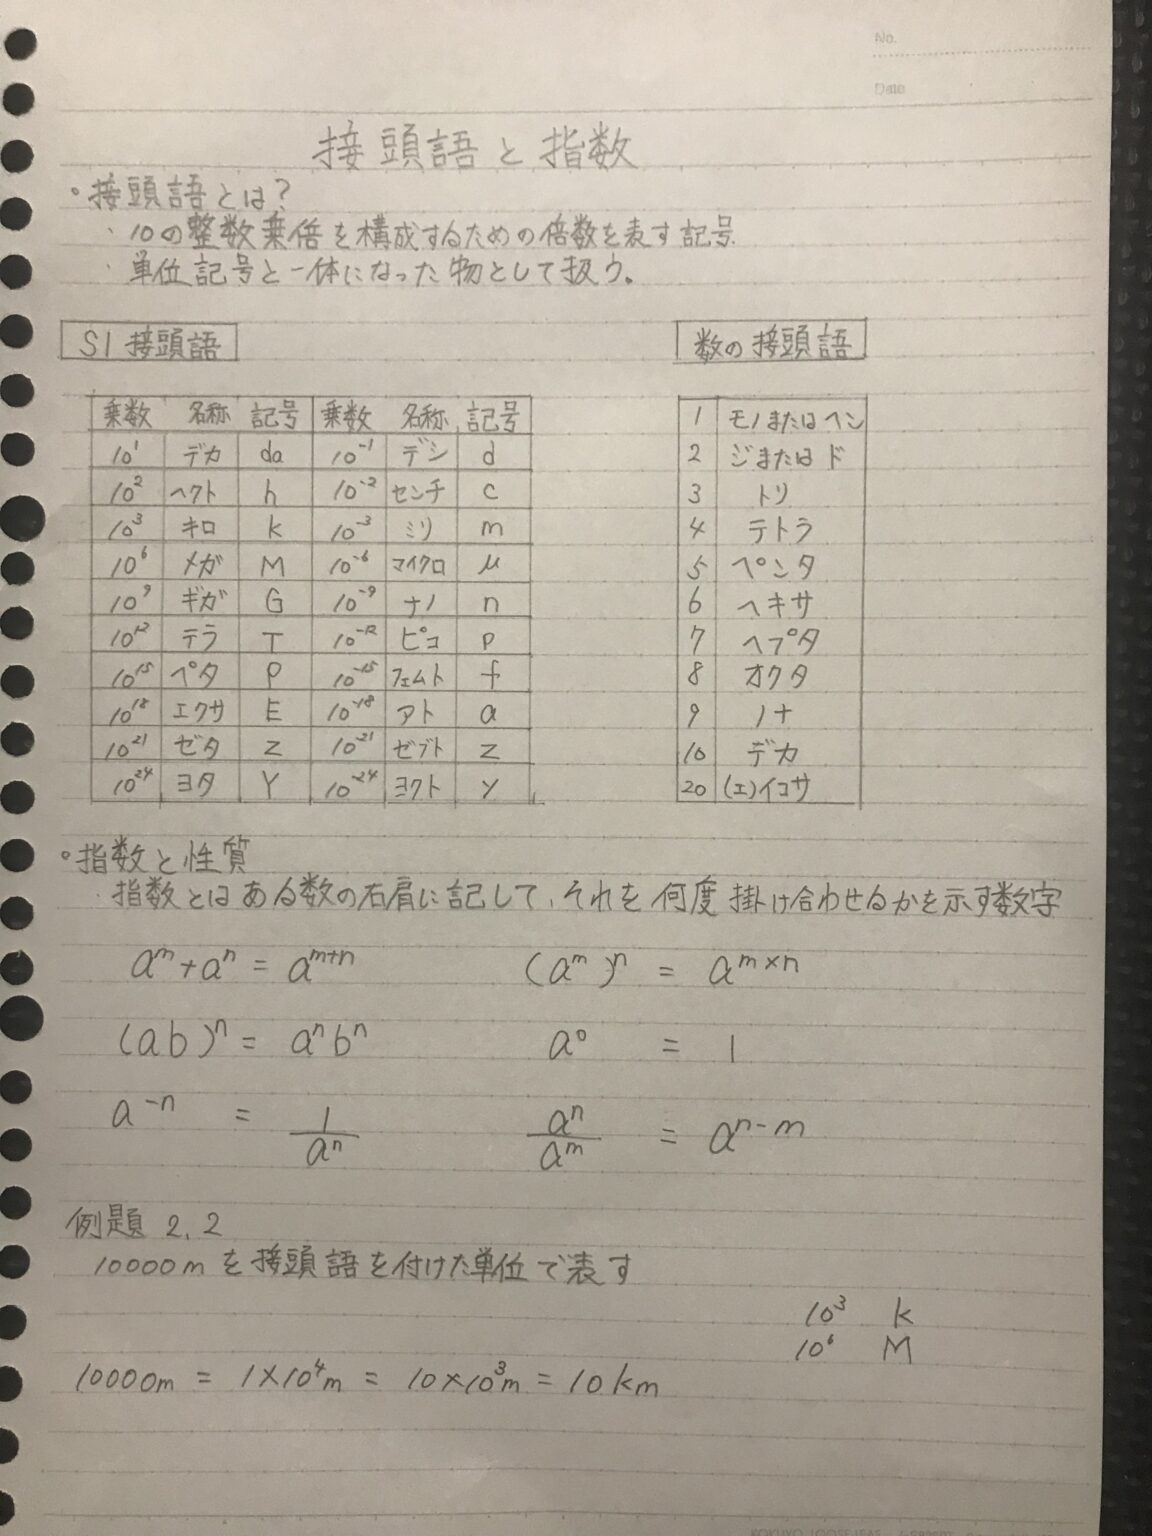 No.
Date
接頭語と指数
・接頭語とは?
・10の整数乗倍を構成するための倍数を表す記号
・単位記号と一体になった物として扱う。
SI 接頭語
乗数 名称 記号 乗数 名称 記号
10¹ デカ da 10⁻¹ デシ d
10² ヘクト h 10⁻² センチ c
10³ キロ k 10⁻³ ミリ m
10⁶ メガ M 10⁻⁶ マイクロ μ
10⁹ ギガ G 10⁻⁹ ナノ n
10¹² テラ T 10⁻¹² ピコ p
10¹⁵ ペタ P 10⁻¹⁵ フェムト f
10¹⁸ エクサ E 10⁻¹⁸ アト a
10²¹ ゼタ Z 10⁻²¹ ゼプト z
10²⁴ ヨタ Y 10⁻²⁴ ヨクト y
数の接頭語
1 モノまたはヘン
2 ジまたはド
3 トリ
4 テトラ
5 ペンタ
6 ヘキサ
7 ヘプタ
8 オクタ
9 ノナ
10 デカ
20 (エ)イコサ
・指数と性質
・指数とはある数の右肩に記して、それを何度掛け合わせるかを示す数字
aᵐ+aⁿ = aᵐ⁺ⁿ (aᵐ)ⁿ = a^(m×n)
(ab)ⁿ = aⁿbⁿ a⁰ = 1
a⁻ⁿ = 1/aⁿ aⁿ/aᵐ = aⁿ⁻ᵐ
例題 2.2
10000mを接頭語を付けた単位で表す
10³ k
10⁶ M
10000m = 1×10⁴m = 10×10³m = 10km